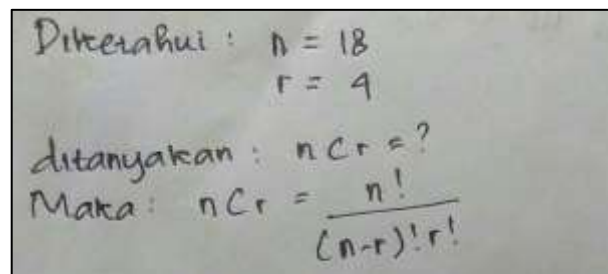 Diketahui : n = 18
r = 4
ditanyakan : nCr = ?
Maka : nCr = n! / (n-r)! r!